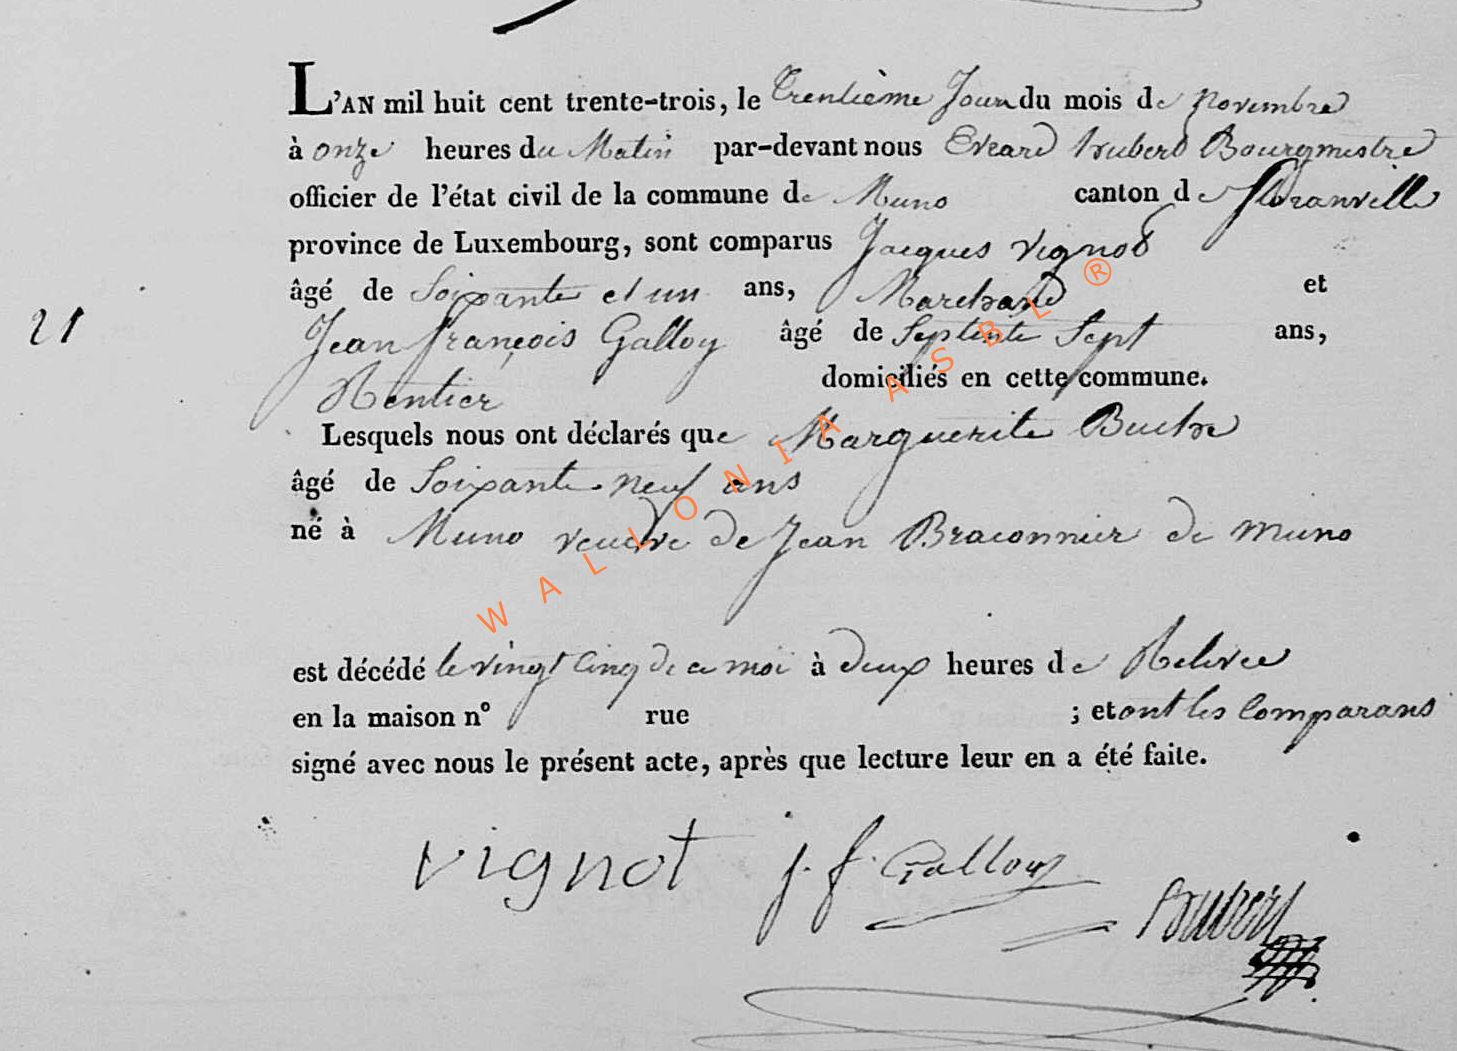 L'AN mil huit cent trente-trois, le trentième Jour du mois de novembre
à onze heures du Matin par-devant nous Evrard hubert Bourgmestre
officier de l'état civil de la commune de Muno canton de floranville
province de Luxembourg, sont comparus Jacques vignot
âgé de Soixante et un ans, Marchand et
21
Jean françois Galloy âgé de Septente Sept ans,
Rentier domiciliés en cette commune.
Lesquels nous ont déclarés que Marguerite Buche
âgé de Soixante neuf ans
né à Muno veuve de Jean Braconnier de muno
est décédé le vingt cinq de ce moi à deux heures de Relevee
en la maison n° rue ; et ont les Comparans
signé avec nous le présent acte, après que lecture leur en a été faite.
vignot j. f. Galloy
hubert
WALLONIA ASBL ®